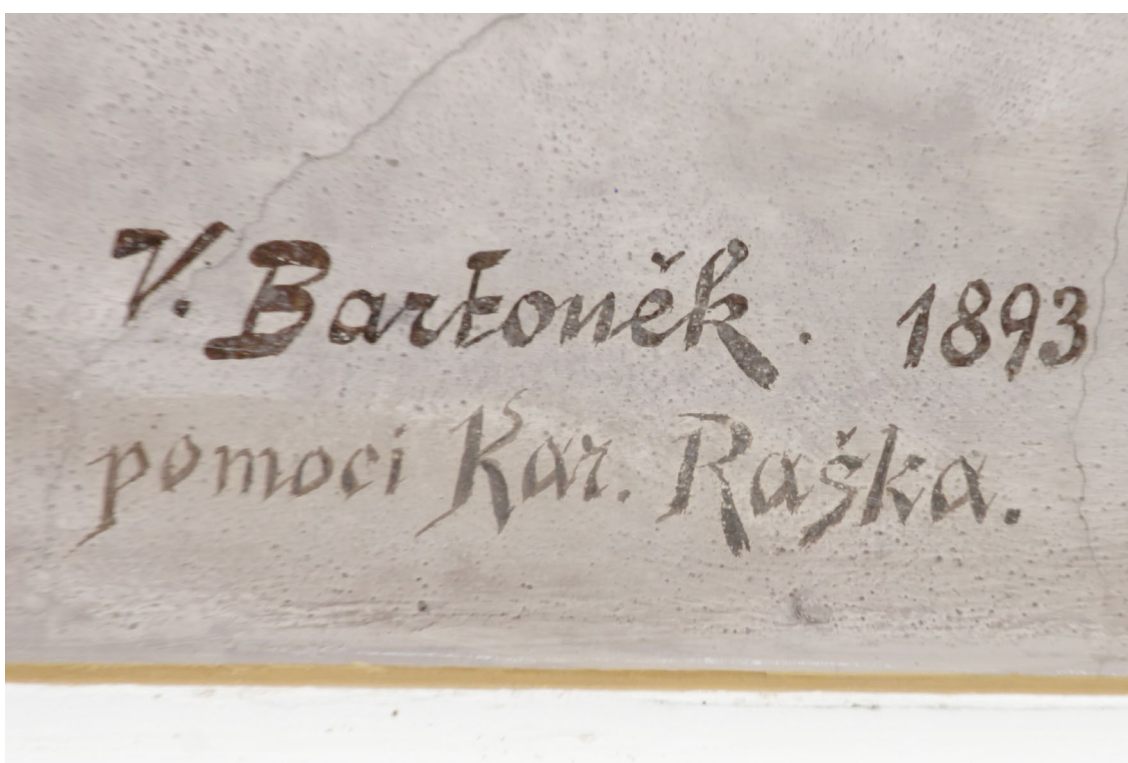 V. Bartoněk. 1893
pomoci Kar. Raška.